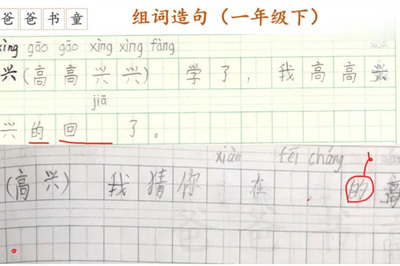 爸爸书童 组词造句（一年级下）
xìng gāo gāo xìng xìng fàng
兴(高高兴兴) 学了，我高高兴
jiā
兴的回 了。
xiàn fēi cháng
(高兴) 我猜你 在 的高